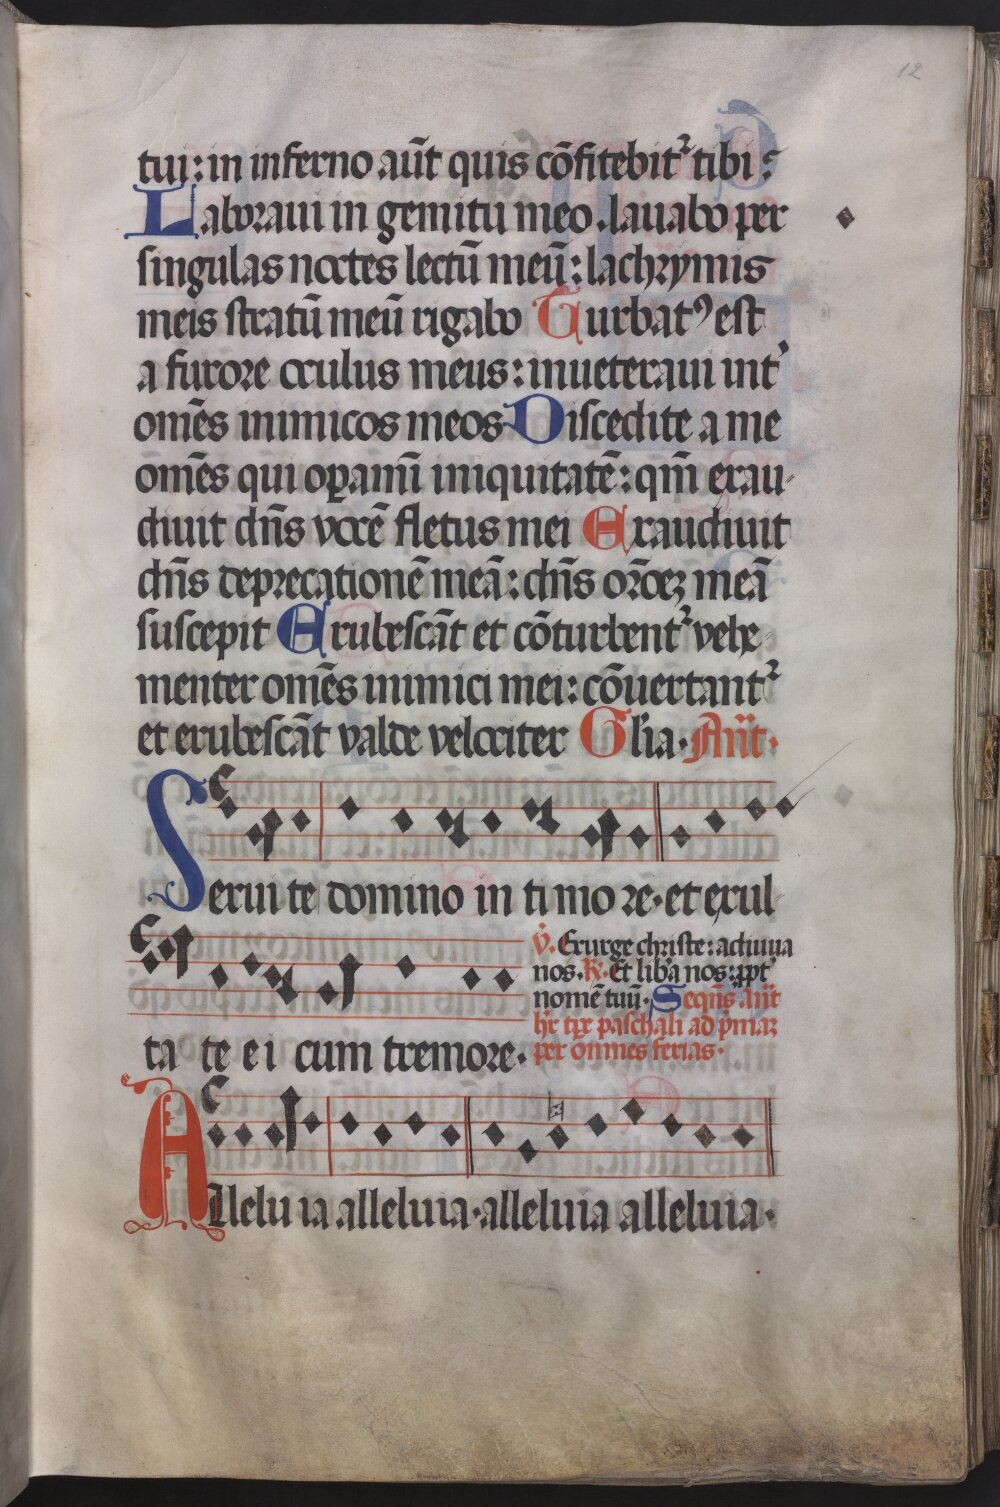 12
tui: in inferno aūt quis cōfitebit᷑ tibi?
Laboraui in gemitu meo. lauabo per
singulas noctes lectū meū: lachrymis
meis stratū meū rigabo Turbatꝰ est
a furore oculus meus: inueteraui int̛
om̄es inimicos meos Discedite a me
om̄es qui oꝑamī iniquitatē: qm̄ exau-
diuit dn̄s vocē fletus mei Exaudiuit
dn̄s deprecationē meā: dn̄s orōeꝫ meā
suscepit Erubescāt et cōturbent᷑ vehe-
menter om̄es inimici mei: cōuertant᷑
et erubescāt valde velociter Gl̄ia. Añt.
Serui te domino in ti mo re. et exul
ta te e i cum tremore.
℣. Exurge christe: adiuua
nos. ℟. Et lib̛a nos: ꝓpt̛
nomē tuū. Seqn̄s añt
hr̄ tꝑe paschali ad p̛maꝫ
per omnes ferias.
Allelu ia alleluia. alleluia alleluia.